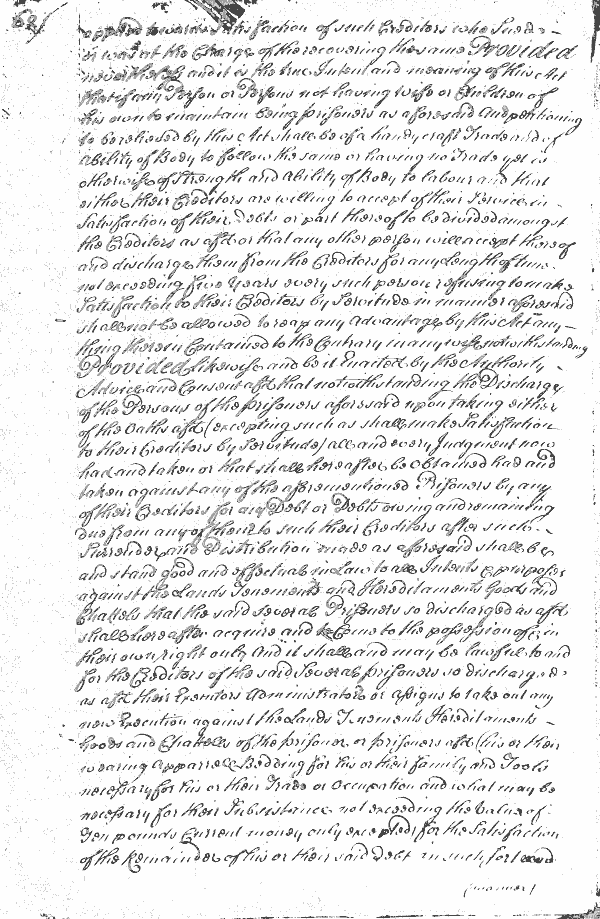 62)
applied towards Satisfaction of such Creditors who Sued
or was at the Charge of the recovering the same Provided
nevertheless and it is the true Intent and meaning of this Act
that if any Person or Persons not having Wife or Children of
his own to maintain being prisoners as aforesaid And petitioning
to be relieved by this Act shall be of a handycraft Trade and of
Ability of Body to follow the same or having no Trade yet is
otherwise of Strength and Ability of Body to labour and that
either their Creditors are willing to accept of their Service in
Satisfaction of their Debts or part thereof to be divided amongst
the Creditors as afsd or that any other person will accept thereof
and discharge them from the Creditors for any length of time
not exceeding five Years every such person refusing to make
Satisfaction to their Creditors by Servitude in manner aforesaid
shall not be allowed to reap any Advantage by this Act any-
thing therein Contained to the Contrary in any wise notwithstanding
Provided likewise and be it Enacted by the Authority
Advice and Consent afsd that notwithstanding the Discharge
of the Persons of the prisoners aforesaid upon taking either
of the Oaths afsd (excepting such as shall make Satisfaction
to their Creditors by Servitude) all and every Judgment now
had and taken or that shall hereafter be obtained had and
taken against any of the aforementioned Prisoners by any
of their Creditors for any Debt or Debts owing and remaining
due from any of them to such their Creditors after such
Surrender and Distribution made as aforesaid shall be
and stand good and effectual in Law to all Intents & purposes
against the Lands Tenements and Hereditaments Goods and
Chattels that the said several Prisoners so discharged as afsd
shall hereafter acquire and Come to the possession of in
their own right only And it shall and may be lawful to and
for the Creditors of the said several prisoners so discharged
as afsd their Executors Administrators or assigns to take out any
new Execution against the Lands Tenements Hereditaments
Goods and Chattells of the prisoner or prisoners afsd (his or their
wearing Apparrel Bedding for his or their family and Tools
necessary for his or their Trade or Occupation and what may be
necessary for their Subsistance not exceeding the Value of
Ten pounds Current money only excepted) for the Satisfaction
of the Remainder of his or their said Debt in such sort and
(manner)